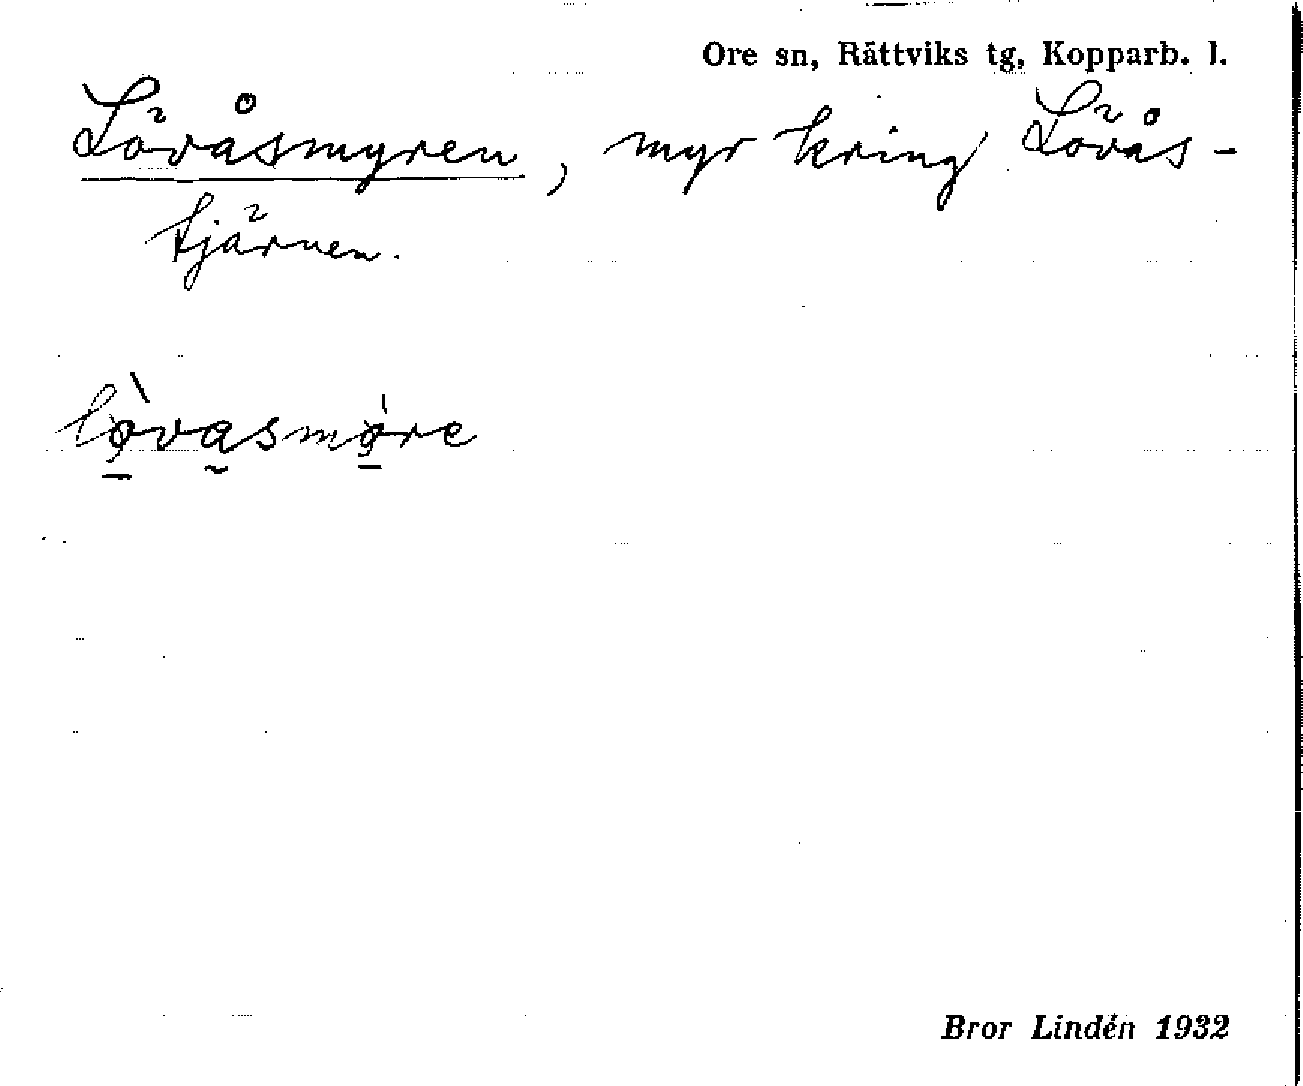 Ore sn, Rättviks tg, Kopparb. l.
Lövåsmyren, myr kring Lövås-
tjärnen.
lòvasmòre
Bror Lindén 1932